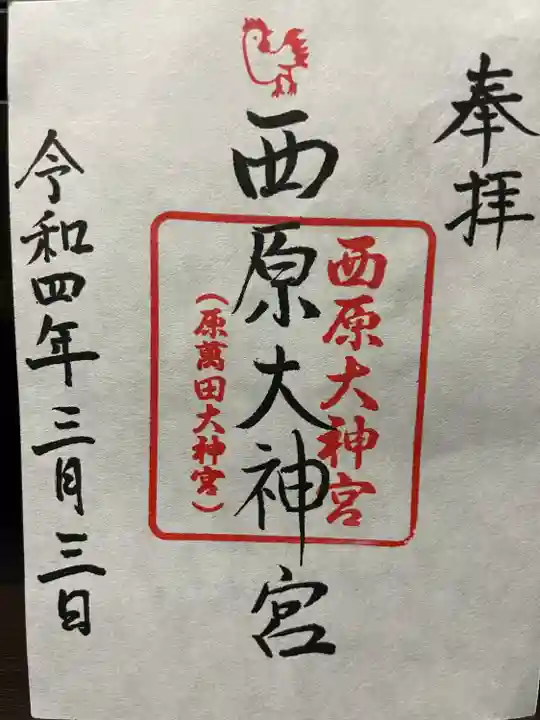 奉拝
西原大神宮
西原大神宮
（原萬田大神宮）
令和四年三月三日